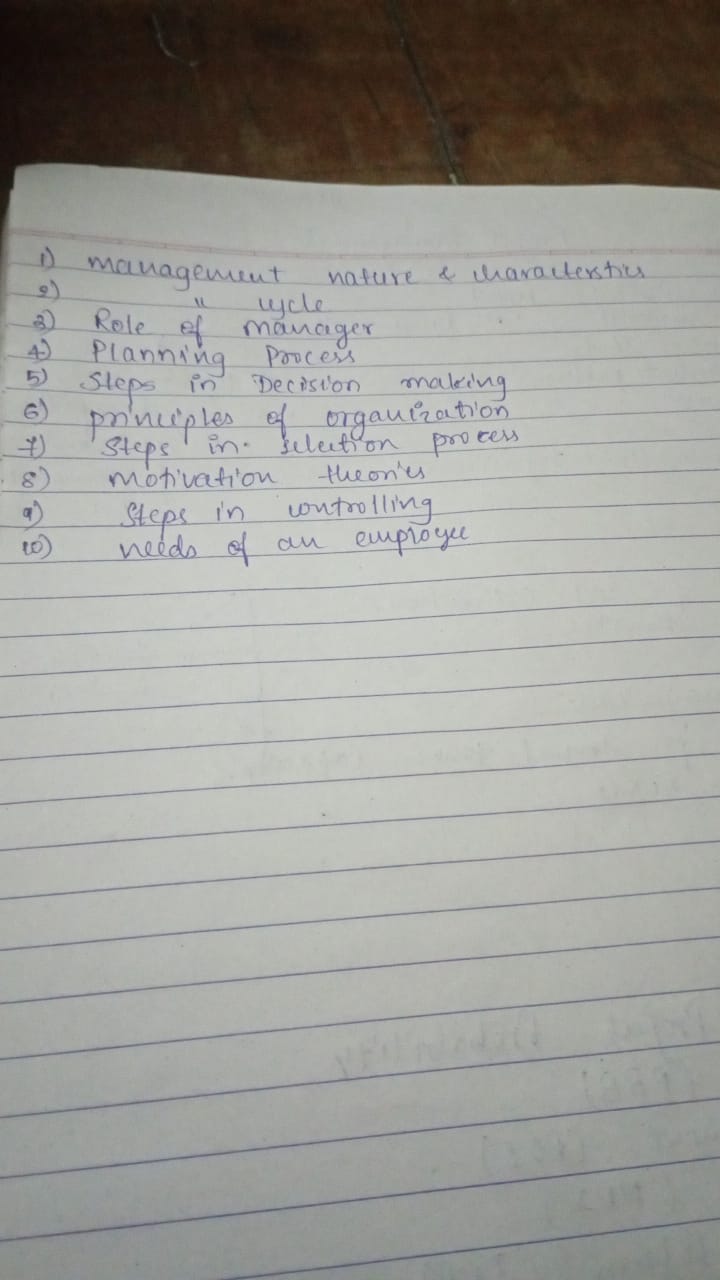 1) management nature & characterstics
2) " cycle
3) Role of manager
4) Planning Process
5) Steps in Decision making
6) principles of organization
7) Steps in selection process
8) motivation theories
9) Steps in controlling
10) needs of an employee